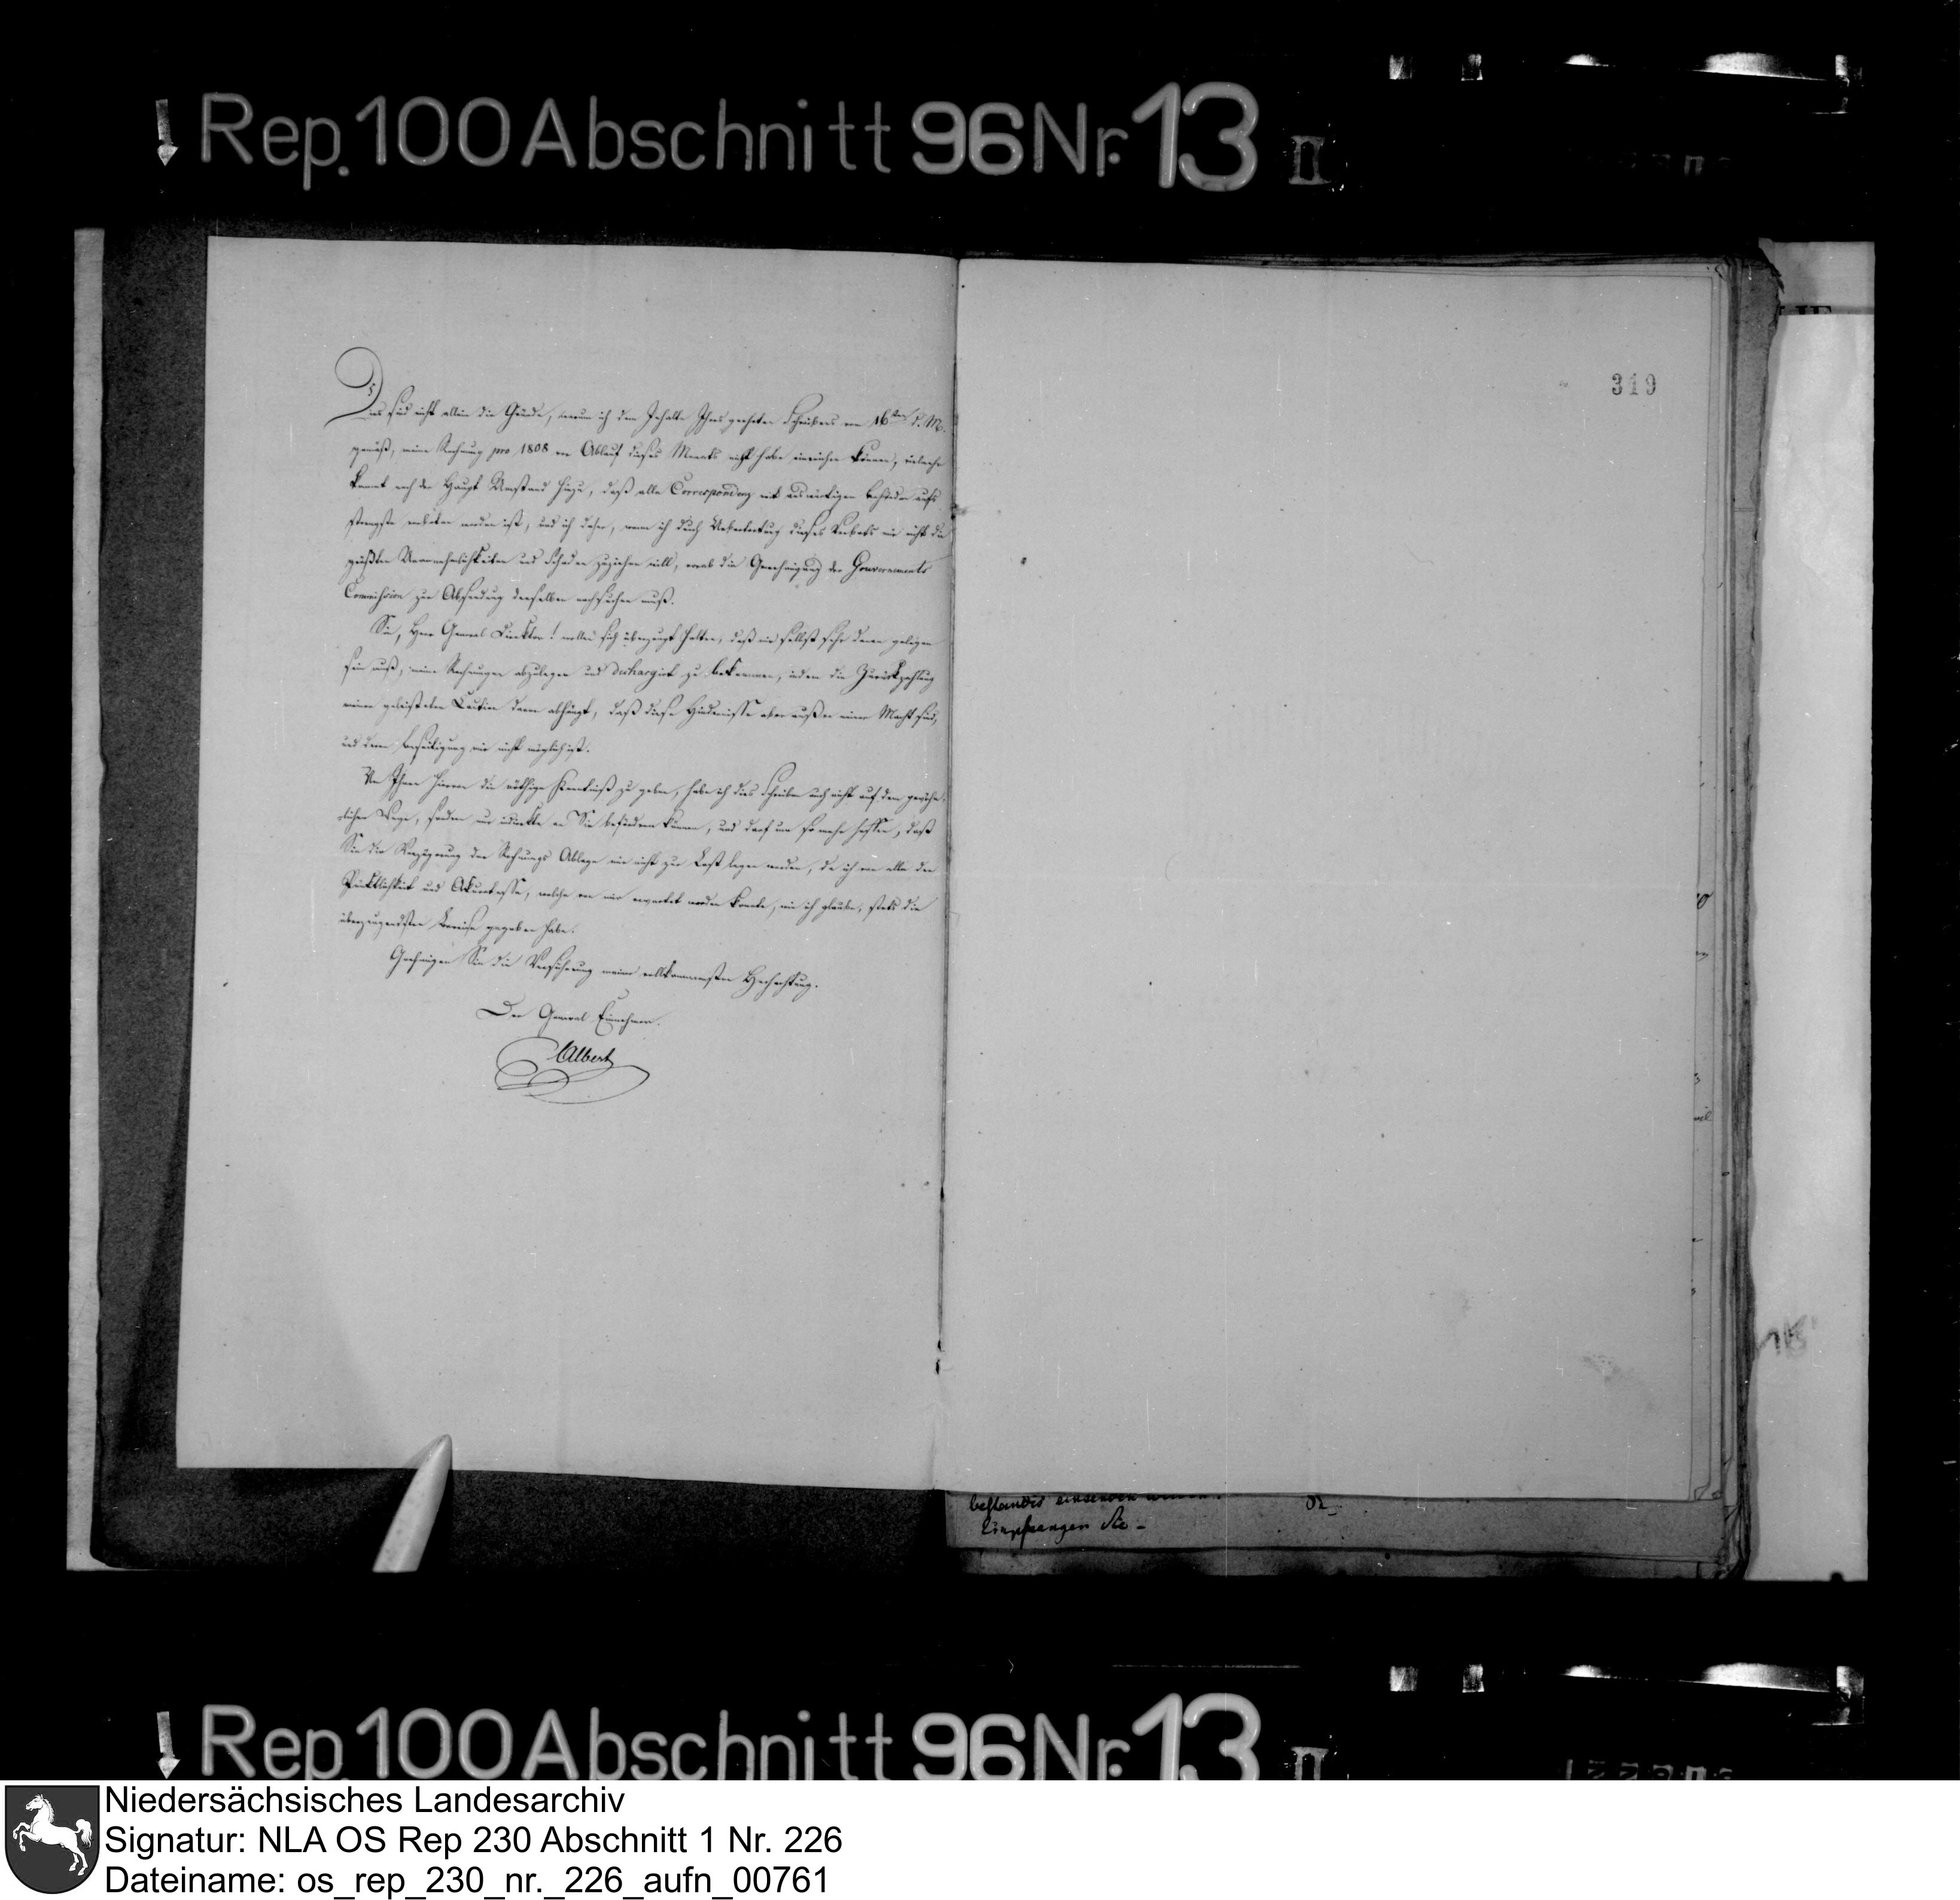 Rep. 100 Abschnitt 96 Nr. 13 II
319
Das sind nicht allein die Gründe, warum ich dem Inhalte Ihres geehrten Schreibens vom 16ten d. M.
gemäß, meine Rechnung pro 1808 vor Ablauf dieses Monats nicht habe einreichen können, vielmehr
kommt noch der Haupt Umstand hinzu, daß alle Correspondenz mit auswärtigen Behörden aufs
strengste verboten worden ist, und ich daher, wenn ich durch Uebertretung dieses Verbots mir nicht die
größten Unannehmlichkeiten und Schaden zuziehen will, vorab die Genehmigung der Gouvernements
Commission zur Absendung derselben nachsuchen muß.
Sie, Herr General Direktor! wollen sich überzeugt halten, daß mir selbst sehr daran gelegen
sein muß, meine Rechnungen abzulegen und dechargirt zu bekommen, indem die Zurückzahlung
meiner geleisteten Caution davon abhängt, daß diese Hindernisse aber außer meiner Macht sind,
und deren Beseitigung mir nicht möglich ist.
Um Ihnen hievon die nöthige Kenntniß zu geben, habe ich dies Schreiben auch nicht auf dem gewöhn-
lichen Wege, sondern nur indirekte an Sie befördern können, und darf um so mehr hoffen, daß
Sie die Verzögerung der Rechnungs Ablage mir nicht zur Last legen werden, da ich von alle der
Pünktlichkeit und Akuratesse, welche von mir erwartet werden konnte, wie ich glaube, stets die
überzeugendsten Beweise gegeben habe.
Genehmigen Sie die Versicherung meiner vollkommensten Hochachtung.
Der General Einnehmer.
Albert
Empfangen Sie -
Rep. 100 Abschnitt 96 Nr. 13 II
Niedersächsisches Landesarchiv
Signatur: NLA OS Rep 230 Abschnitt 1 Nr. 226
Dateiname: os_rep_230_nr._226_aufn_00761